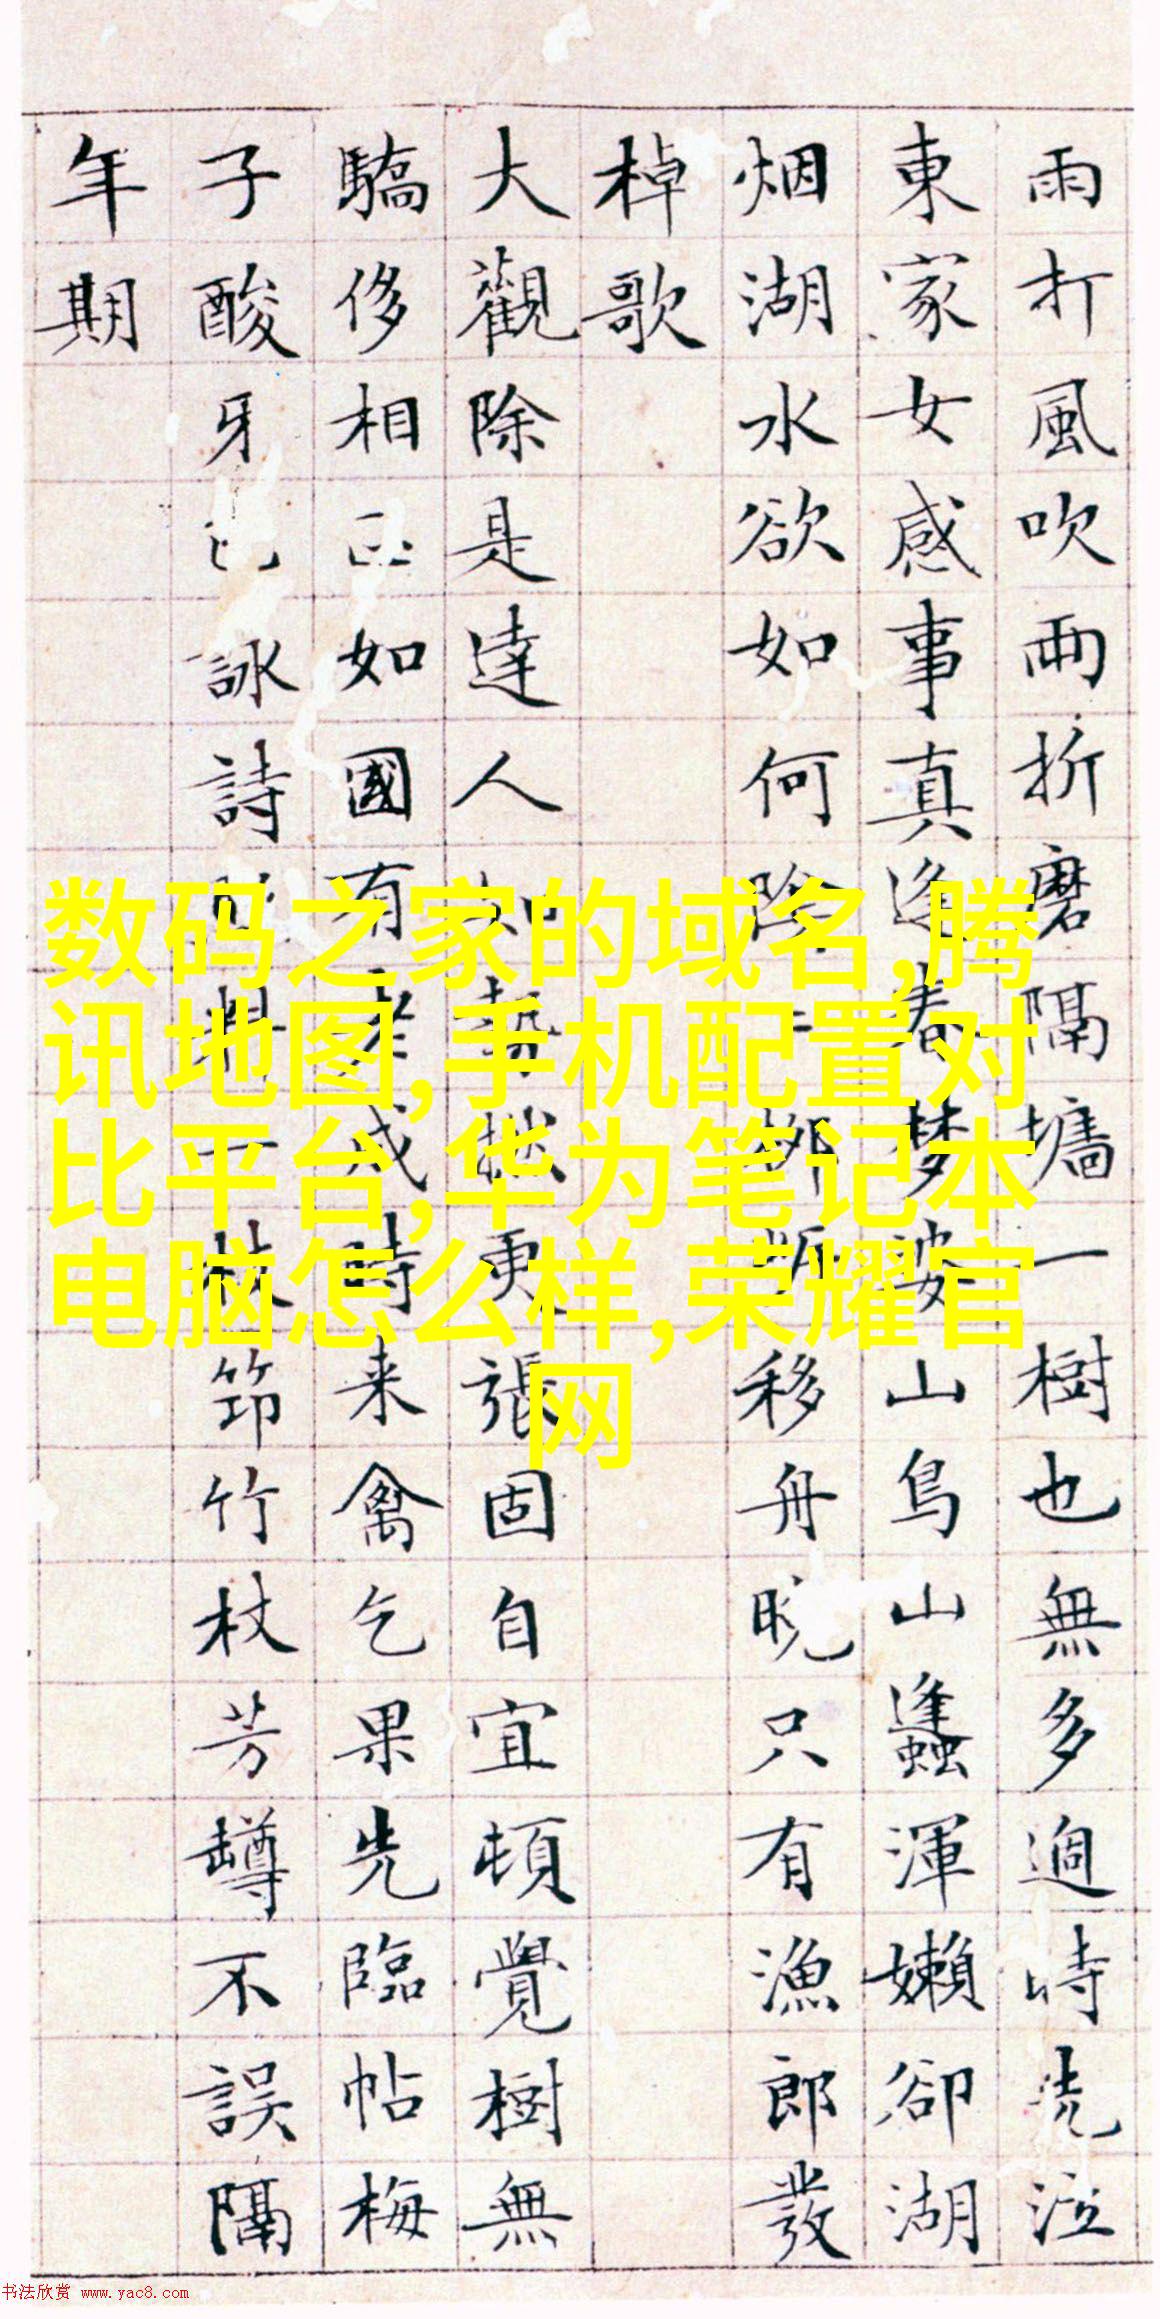 雨打風吹雨折磨隔墻一樹也無多過時泣
東家女感事真逢春夢婆山鳥山蠭渾嬾卻湖
烟湖水欲如何柳移舟晚只有漁郎發
棹歌
大觀除是達人知勢更張固自宜頓覺樹無
驕侈相如國有老成時来禽乞果先臨帖梅
子酸牙詠詩一枝筇竹杖芳罇不誤隔
年期
数码之家的域名,腾
讯地图,手机配置对
比平台,华为笔记本
电脑怎么样,荣耀官
网
书法欣赏 www.yac8.com